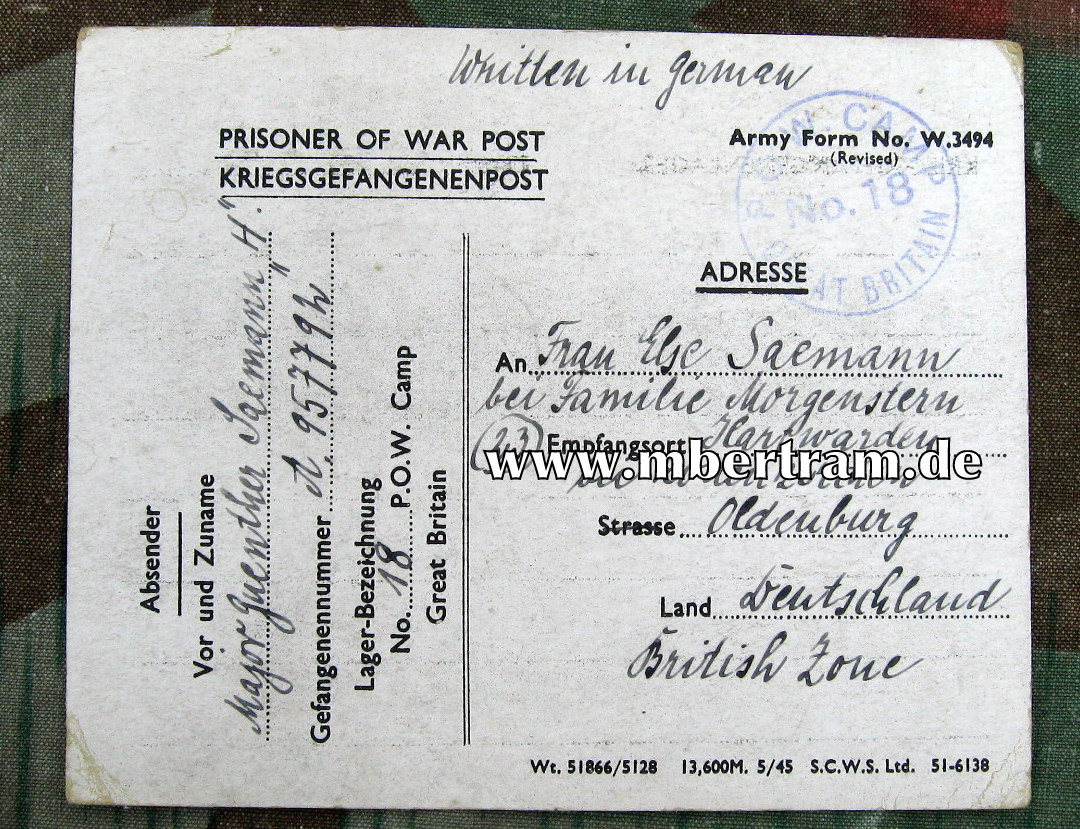 Written in German
PRISONER OF WAR POST
KRIEGSGEFANGENENPOST
Army Form No. W.3494
(Revised)
P.O.W. CAMP
No. 18
GREAT BRITAIN
ADRESSE
An Frau Else Saemann
bei Familie Morgenstern
(23) Empfangsort Hartwarden
www.mbertram.de
Strasse Oldenburg
Land Deutschland
British Zone
Absender
Vor und Zuname
Major Guenther Saemann „H“.
Gefangenennummer A. 957792
Lager-Bezeichnung
No. 18 P.O.W. Camp
Great Britain
Wt. 51866/5128 13,600M. 5/45 S.C.W.S. Ltd. 51-6138